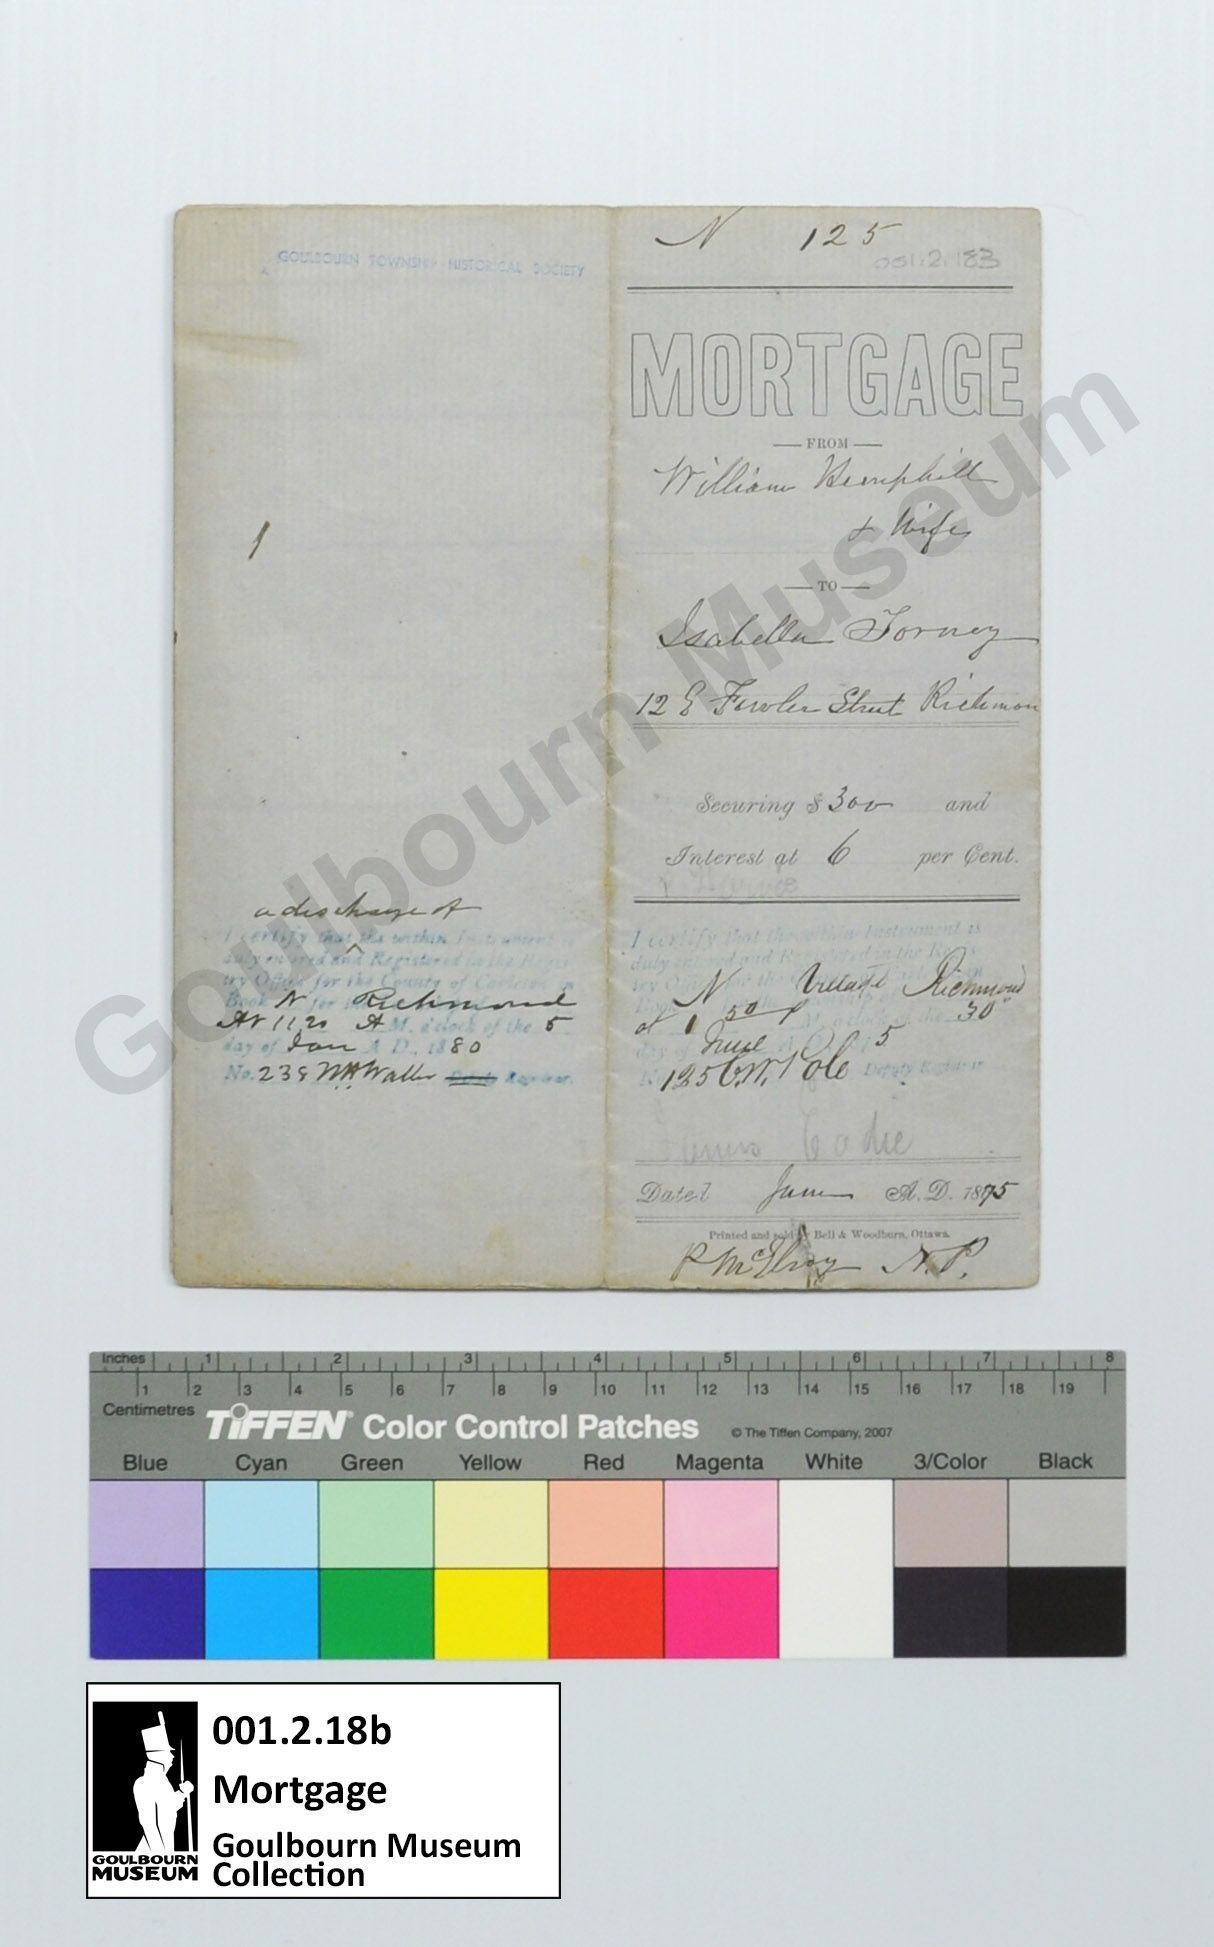 GOULBOURN TOWNSHIP HISTORICAL SOCIETY
1
a discharge of
I certify that the within Instrument is
duly entered and Registered in the Regis-
try Office for the County of Carleton in
Book N for Richmond
At 11 20 A M. o'clock of the 5
day of Jan A.D., 1880
No. 238 Deputy Registrar.
N 125
001.2.183
MORTGAGE
FROM
William Hemphill
& Wife
TO
Isabella Torney
12 E Fowler Street Richmon
Securing $ 300 and
Interest at 6 per Cent.
I certify that the within Instrument is
duly entered and Registered in the Regis-
try Office for the
N Village Richmond
at 1 50 M. o'clock of the 30
day of June A.D. 5
125 Deputy Registrar
Dated June A.D. 1875
Printed and sold by Bell & Woodburn, Ottawa.
P McElroy N.P.
Goulbourn Museum
Inches 1 2 3 4 5 6 7 8
1 2 3 4 5 6 7 8 9 10 11 12 13 14 15 16 17 18 19
Centimetres
TIFFEN Color Control Patches © The Tiffen Company, 2007
Blue Cyan Green Yellow Red Magenta White 3/Color Black
001.2.18b
Mortgage
Goulbourn Museum
Collection
GOULBOURN
MUSEUM